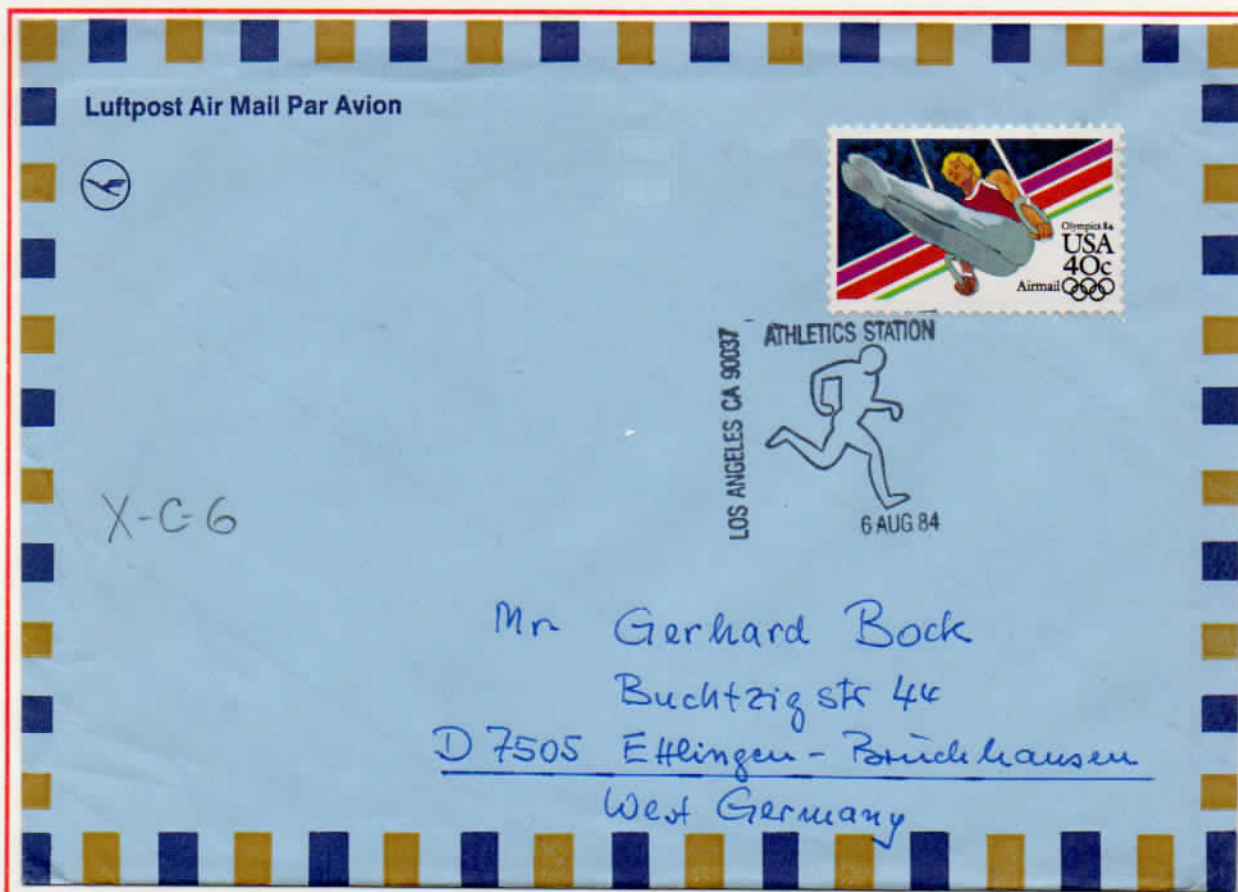 Luftpost Air Mail Par Avion
Olympics 84
USA
40c
Airmail
ATHLETICS STATION
LOS ANGELES CA 90037
6 AUG 84
X-C-6
Mr Gerhard Bock
Buchtzigstr 44
D 7505 Ettlingen-Bruchhausen
West Germany